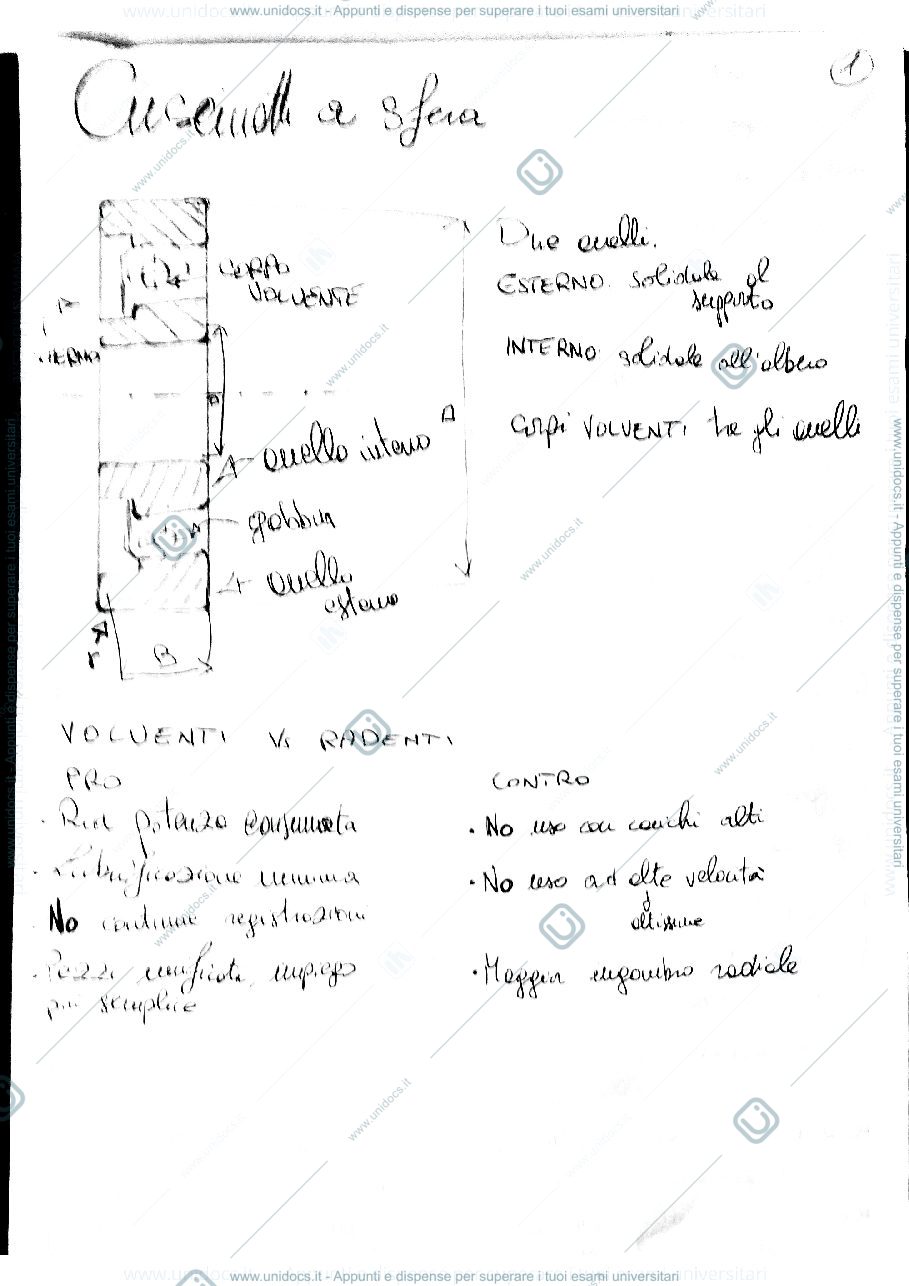 www.unidocs.it - Appunti e dispense per superare i tuoi esami universitari
1
Cuscinetti a sfera
CORPO
VOLVENTE
Due anelli.
ESTERNO solidale al
supporto
INTERNO solidale all'albero
Corpi VOLVENTI tra gli anelli
D
anello interno
gabbia
anello
esterno
r
B
VOLVENTI Vs RADENTI
PRO
CONTRO
· Rid potenza consumata
· No uso con carichi alti
· Lubrificazione minima
· No uso ad alte velocità
altissime
No continue registrazioni
· Pezzi unificati, impiego
più semplice
· Maggior ingombro radiale
www.unidocs.it - Appunti e dispense per superare i tuoi esami universitari